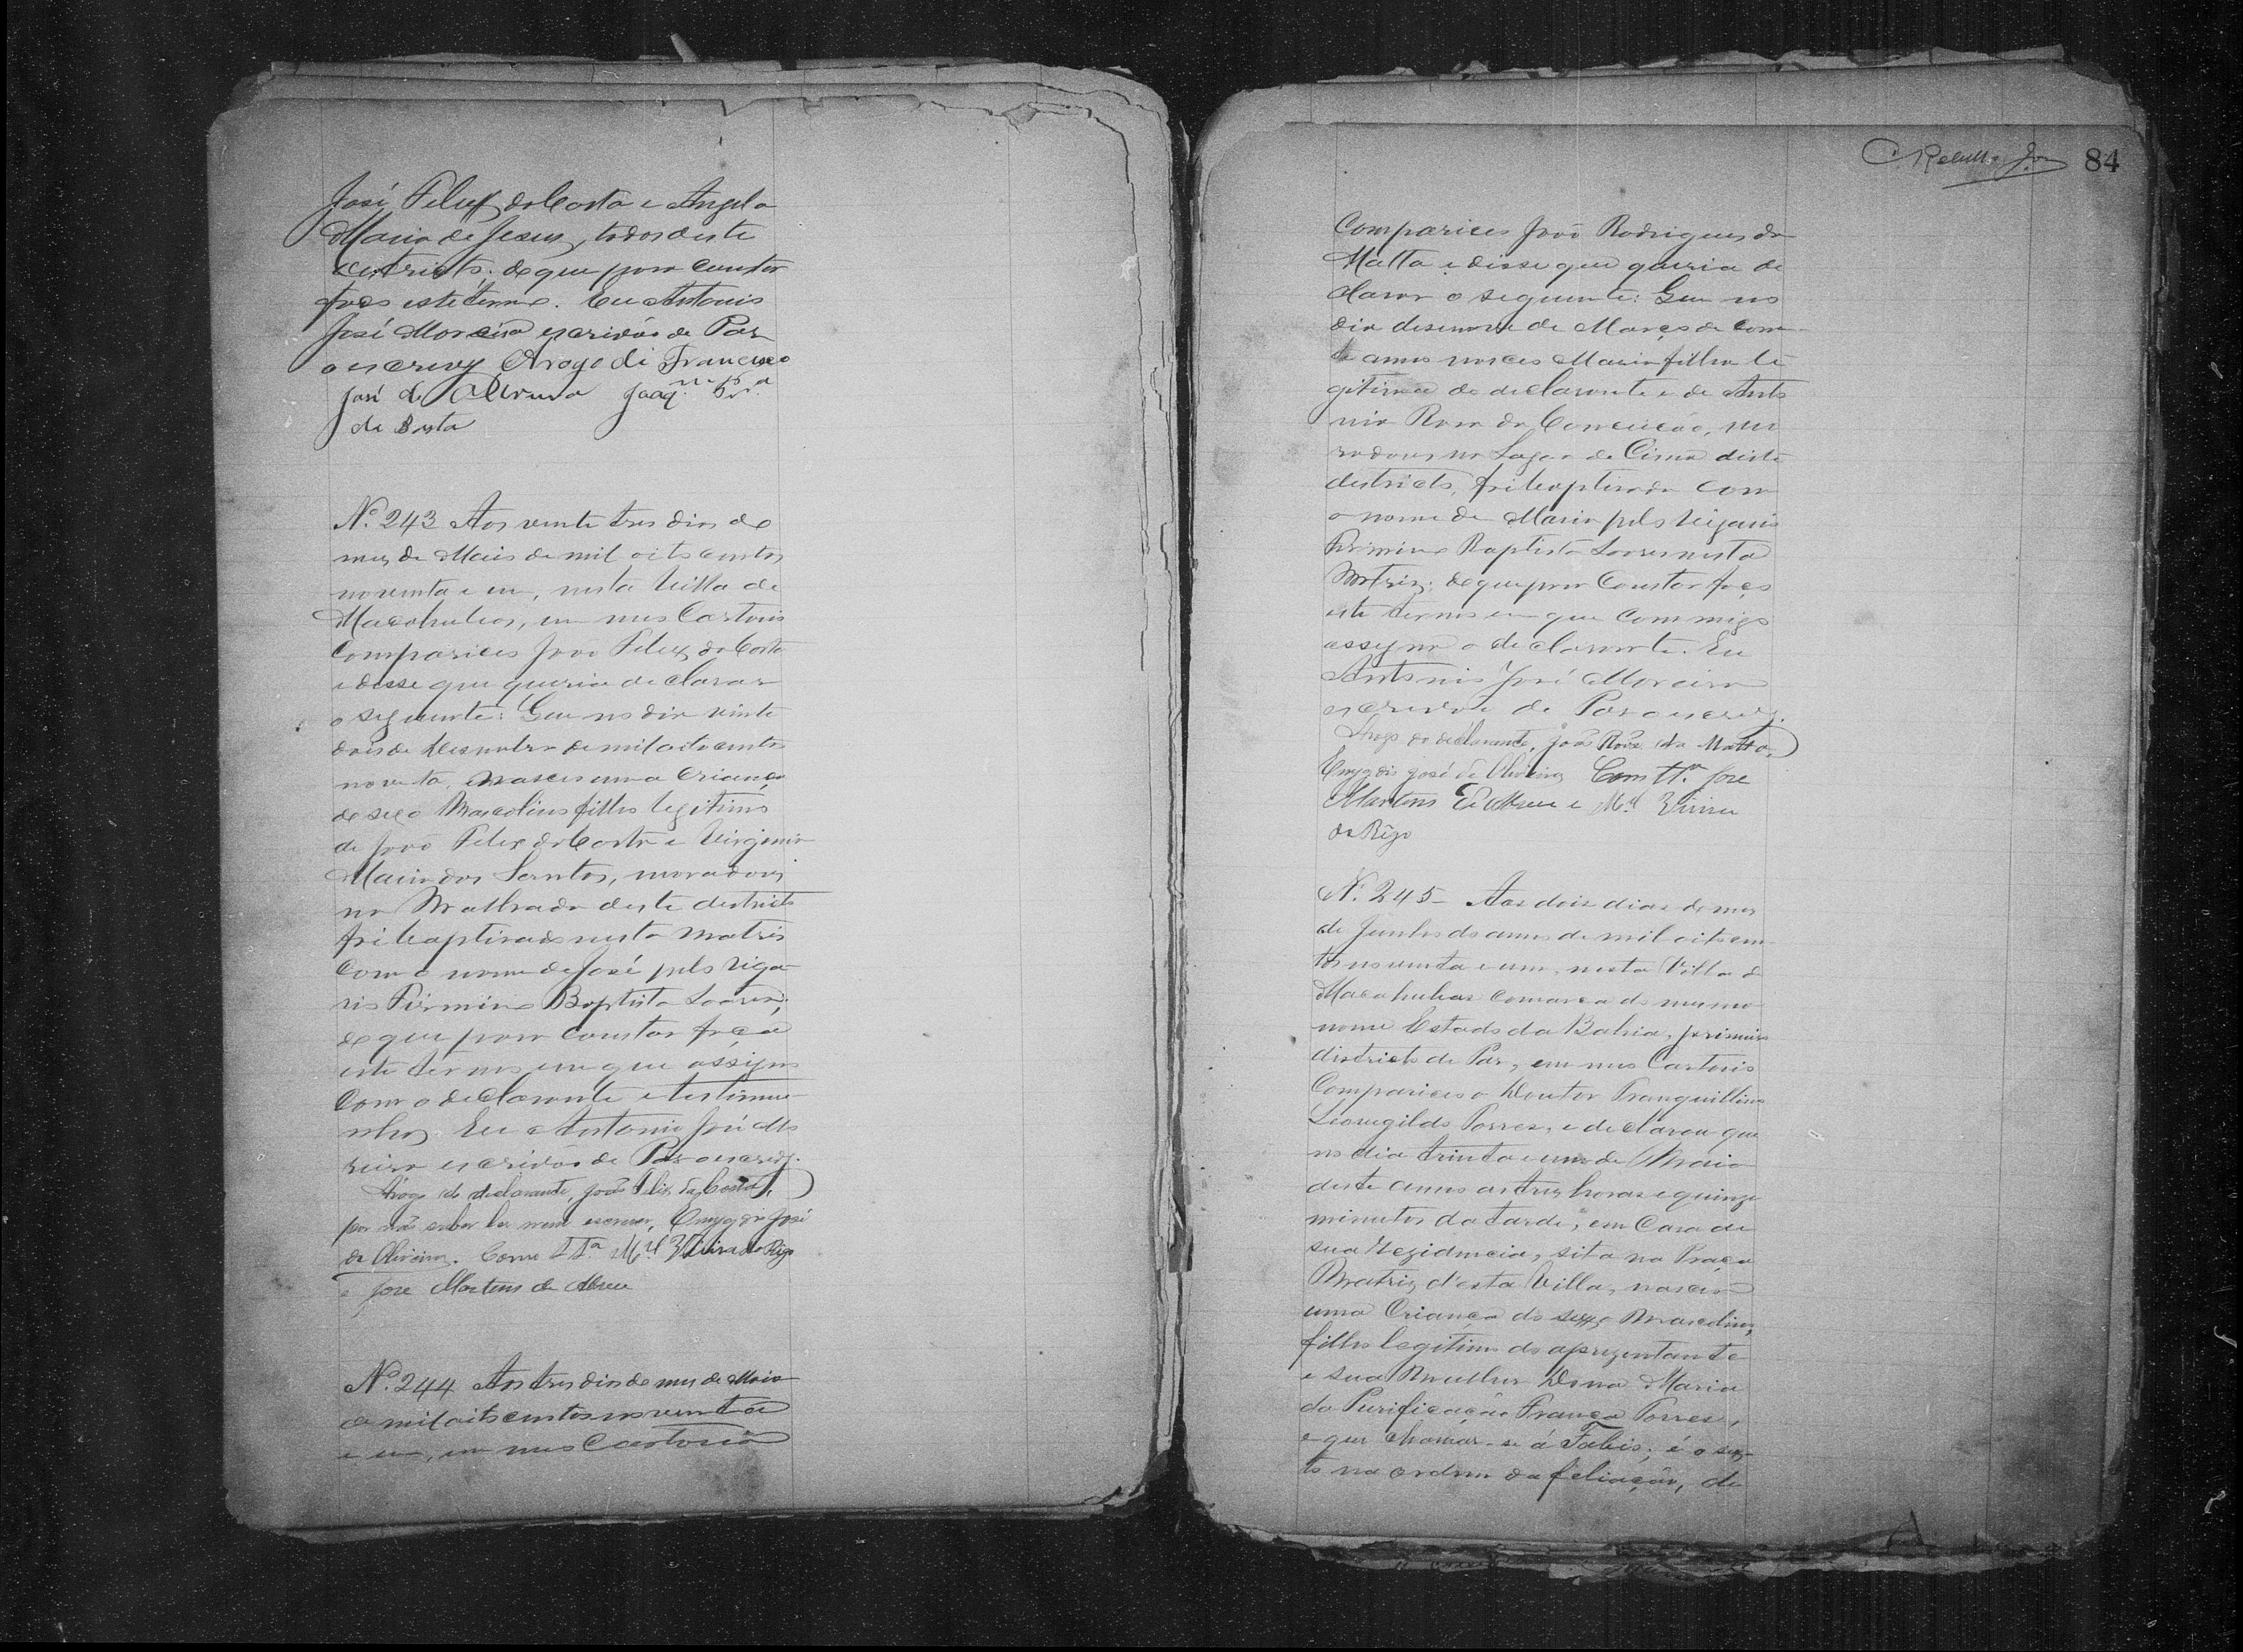 José Felix da Costa e Angela
Maria de Jesus, todos deste
destricto; de que para constar
faço este termo. Eu Antonio
José Moreira escrivão de Paz
o escrevy Arogo de Francisco
José de
da Costa
Nº 243 Aos vinte tres dias do
mez de Maio de mil oito centos
noventa e um, nesta Villa de
Macahubas, em meu Cartorio
Compareceo João Felix da Costa
e disse que queria declarar
o seguinte: Que no dia vinte
dois de Dezembro de mil oito centos
noventa, nasceu uma Criança
de sexo Mascolino filho legitimo
de João Felix da Costa e Virginia
Maria dos Santos, moradores
no Malhado deste destricto
foi baptizado nesta Matriz
com o nome de José pelo Viga-
rio Firmino Baptista Soares;
de que para constar faço
este termo em que assigna
Com o declarante e testimu-
nhas. Eu Antonio José Mo
reira escrivão de Paz o escrevy.
Arogo do declarante, João Felix da Costa,
por não saber ler nem escrever, Emygdio José
de Oliveira. Como TTª Mel Vieira do Rêgo
e José Martins de Abreu
Nº 244 Aos tres dias do mez de Maio
de mil oito centos noventa
e um, em meu Cartorio
84
Compareceo João Rodrigues da
Matta e disse que queria de
clarar o seguinte: Que no
dia desenove de Março de corren
te anno nasceo Maria filha le
gitima do declarante e de Anto
nia Rosa da Conceição, mo
radores na Lagoa de Cima deste
destricto, foi baptizada com
o nome de Maria pelo Vigario
Firmino Baptista Soares nesta
Matriz; de que para Constar faço
este termo em que commigo
assigna o declarante. Eu
Antonio José Moreira
escrivão de Paz o escrevy.
Arogo do declarante, João Roiz da Matta,
Emygdio José de Oliveira Com TTª José
Martins de Abreu e Mel Vieira
do Rêgo
Nº 245 - Aos dois dias do mez
de Junho do anno de mil oito cen
tos noventa e um, nesta Villa de
Macahubas comarca do mesmo
nome Estado da Bahia, primeiro
districto de Paz, em meu Cartorio
Compareceo o Doutor Tranquillino
Leovigildo Torres, e declarou que
no dia trinta e um de Maio
deste anno as tres horas e quinze
minutos da tarde, em Casa de
sua Rezidencia, sita na Praça
Matriz d'esta Villa, nasceo
uma Criança do sexo Mascolino,
filho legitimo do aprezentante
e sua Mulher Dona Maria
da Purificação França Torres,
e que chamar-se á Fabio; é o sex-
to na ordem da feliação, de